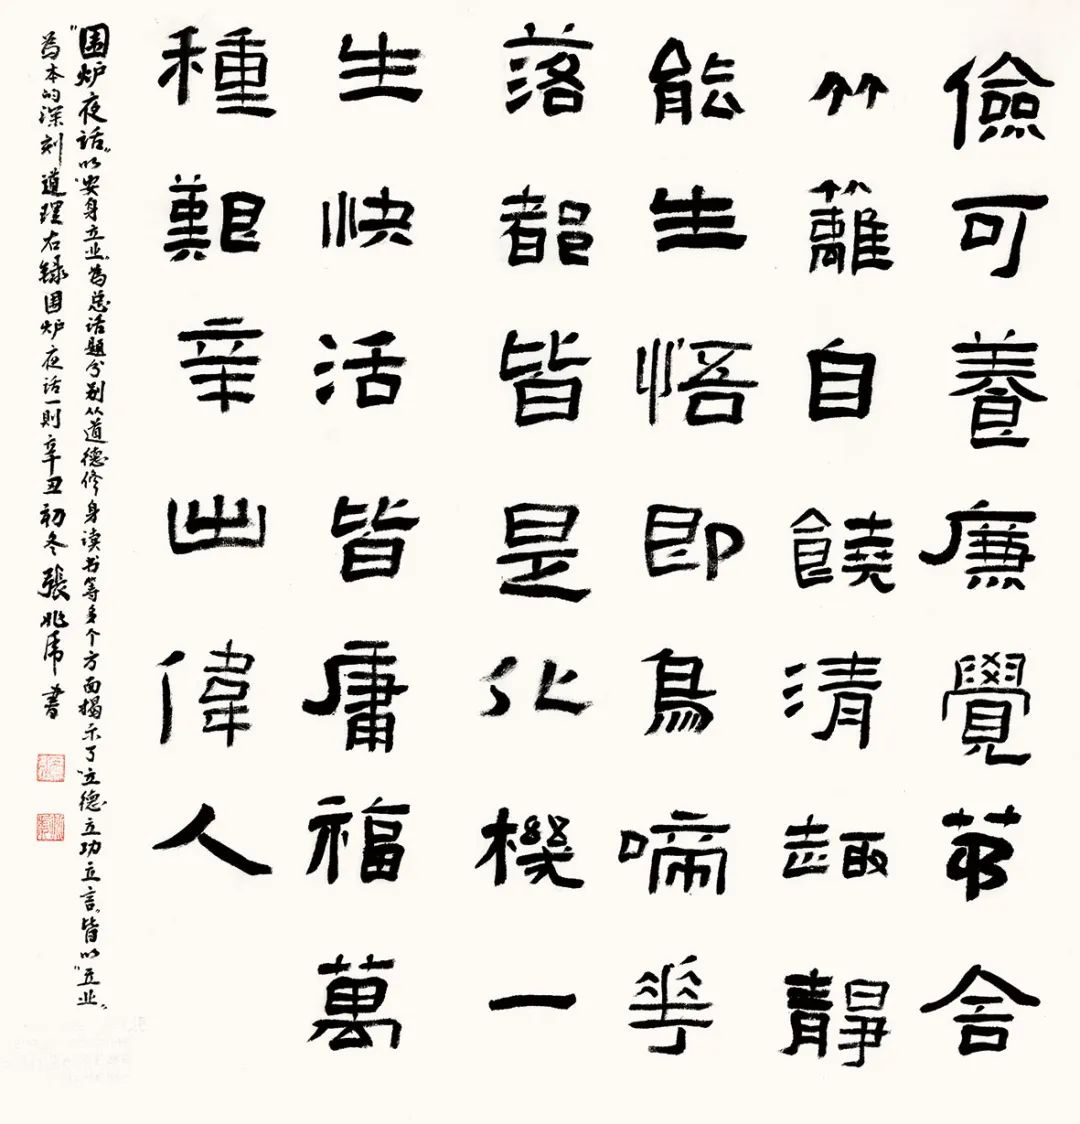 儉可養廉覺茅舍
竹籬自饒清趣靜
能生悟即鳥啼花
落都皆是化機一
生快活皆庸福萬
種艱辛出偉人
“围炉夜话”以“安身立业”為总话题分别从道德修身读书等多个方面揭示了“立德立功立言”皆以“立业”
為本的深刻道理右録围炉夜话一則辛丑初冬張兆虎書